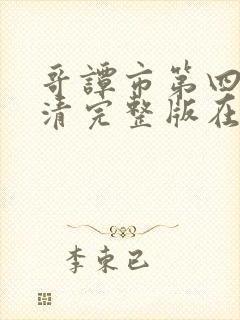 哥谭市第四
清完整版在
李束已